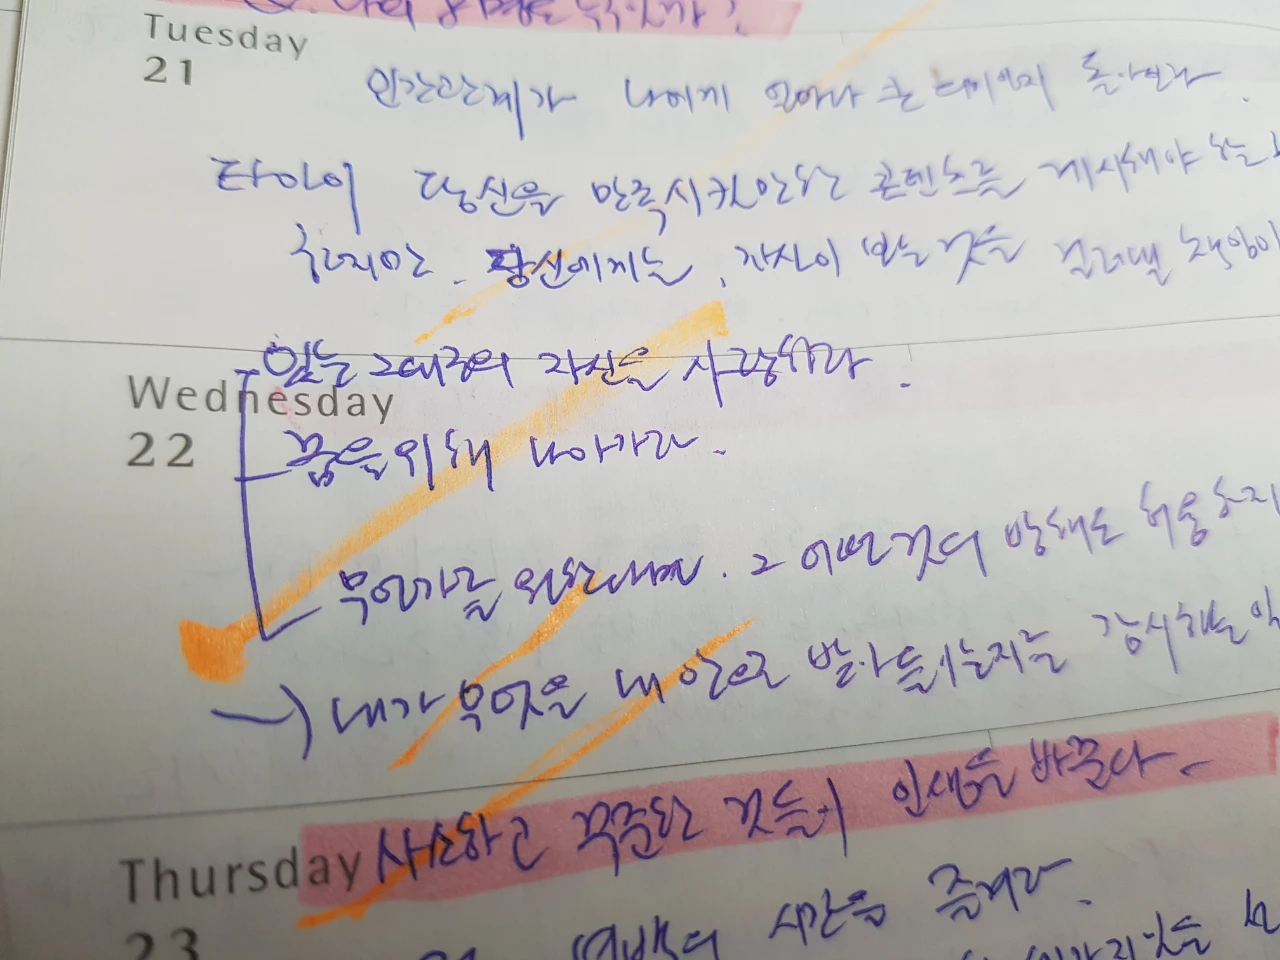 Tuesday
21
인간관계가 나에게 얼마나 큰 돌아보라.
타인이 당신을 만족시키 콘텐츠를 게시해야 하는
하지만, 당신에게는, 자신이 보는 것을 걸러낼 책임이
있는 그대로의 자신을 사랑하라.
Wednesday
22
꿈을 위해 나아가라.
무언가를 원한다면, 그 어떤것의 방해도 허용하지
→ 내가 무엇을 내 안으로 받아들이는지를 감시하는
사소하고 꾸준한 것들이 인생을 바꾼다.
Thursday
23
여백의 시간을 즐겨라.